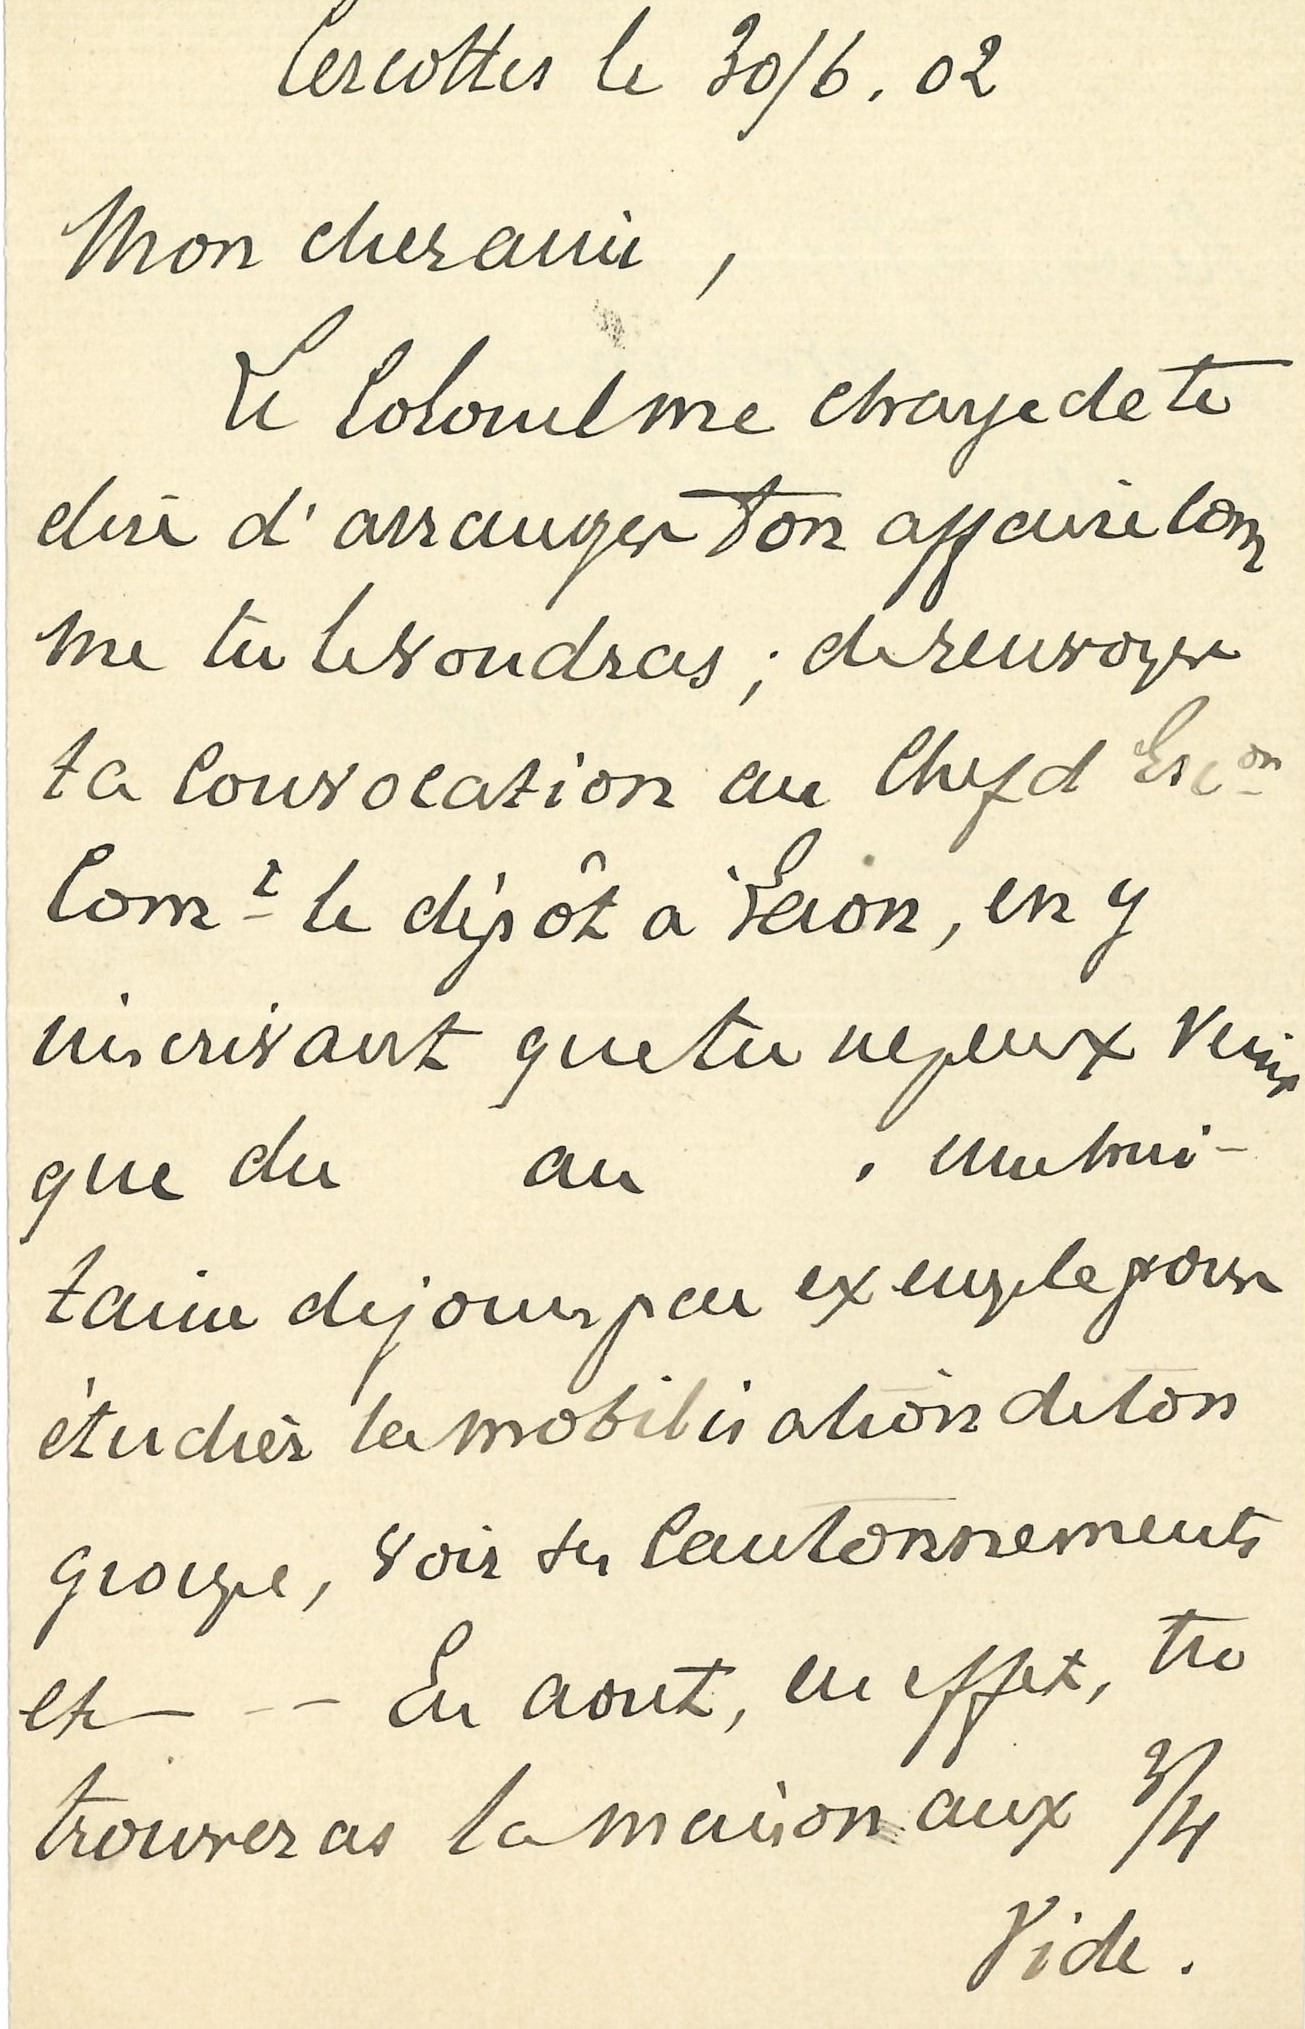 Cercottes le 30/6. 02
Mon cher ami,
Le Colonel me charge de te
dire d'arranger ton affaire com
me tu le voudras ; de renvoyer
ta convocation au Chef d'Esc on
Com t le dépôt à Laon, en y
inscrivant que tu ne peux venir
que du au , une hui-
taine de jours par exemple pour
étudier la mobilisation de ton
groupe, voir tes cantonnements
etc - - En aout, en effet, tu
trouveras la maison aux 3/4
Vide.